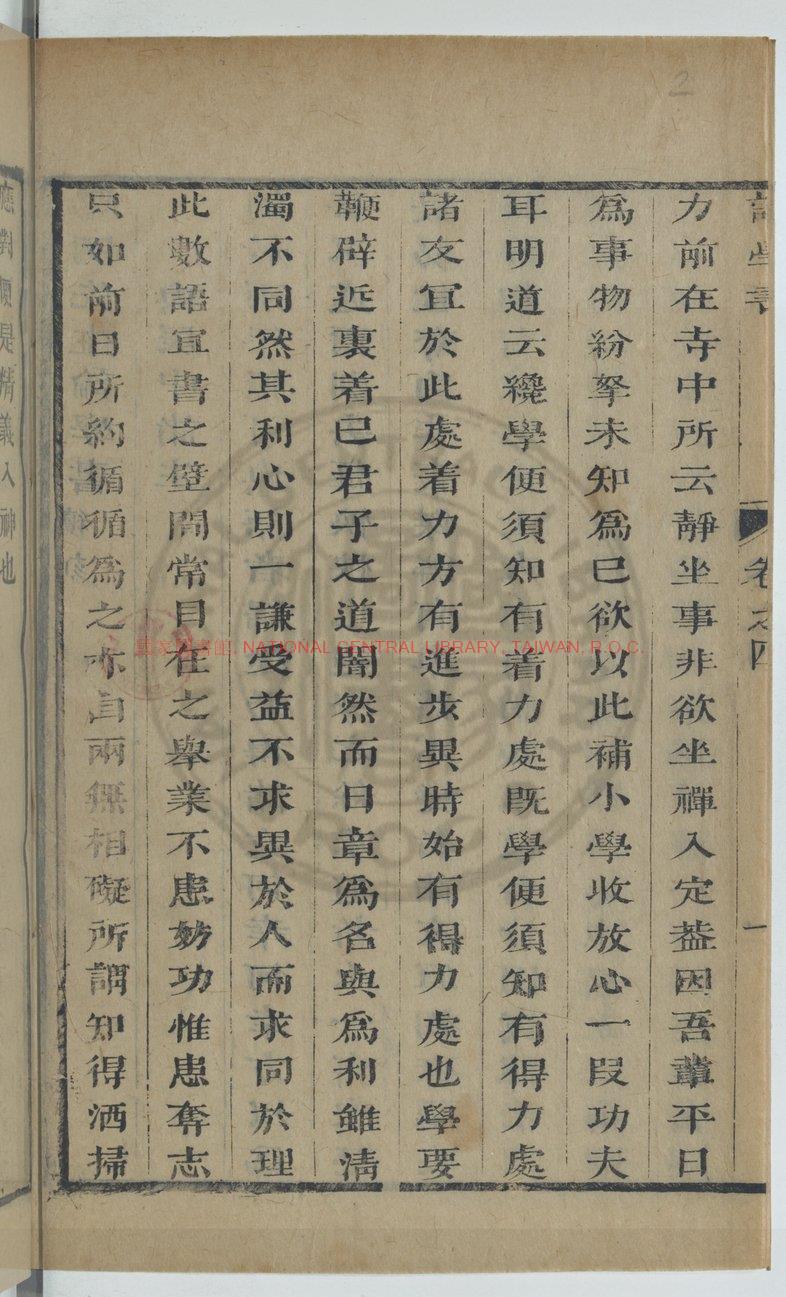 2
卷之四
一
力前在寺中所云靜坐事非欲坐禪入定葢因吾軰平日
為事物紛拏未知為巳欲以此補小學收放心一段功夫
耳明道云纔學便須知有着力處既學便須知有得力處
諸友宜於此處着力方有進步異時始有得力處也學要
鞭辟近裏着巳君子之道闇然而日章為名與為利雖清
濁不同然其利心則一謙受益不求異於人而求同於理
此數語宜書之壁間常目在之舉業不患妨功惟患奪志
只如前日所約循循為之亦自兩無相礙所謂知得洒掃
應對便是精義入神也
國家圖書館, NATIONAL CENTRAL LIBRARY, TAIWAN, R.O.C.